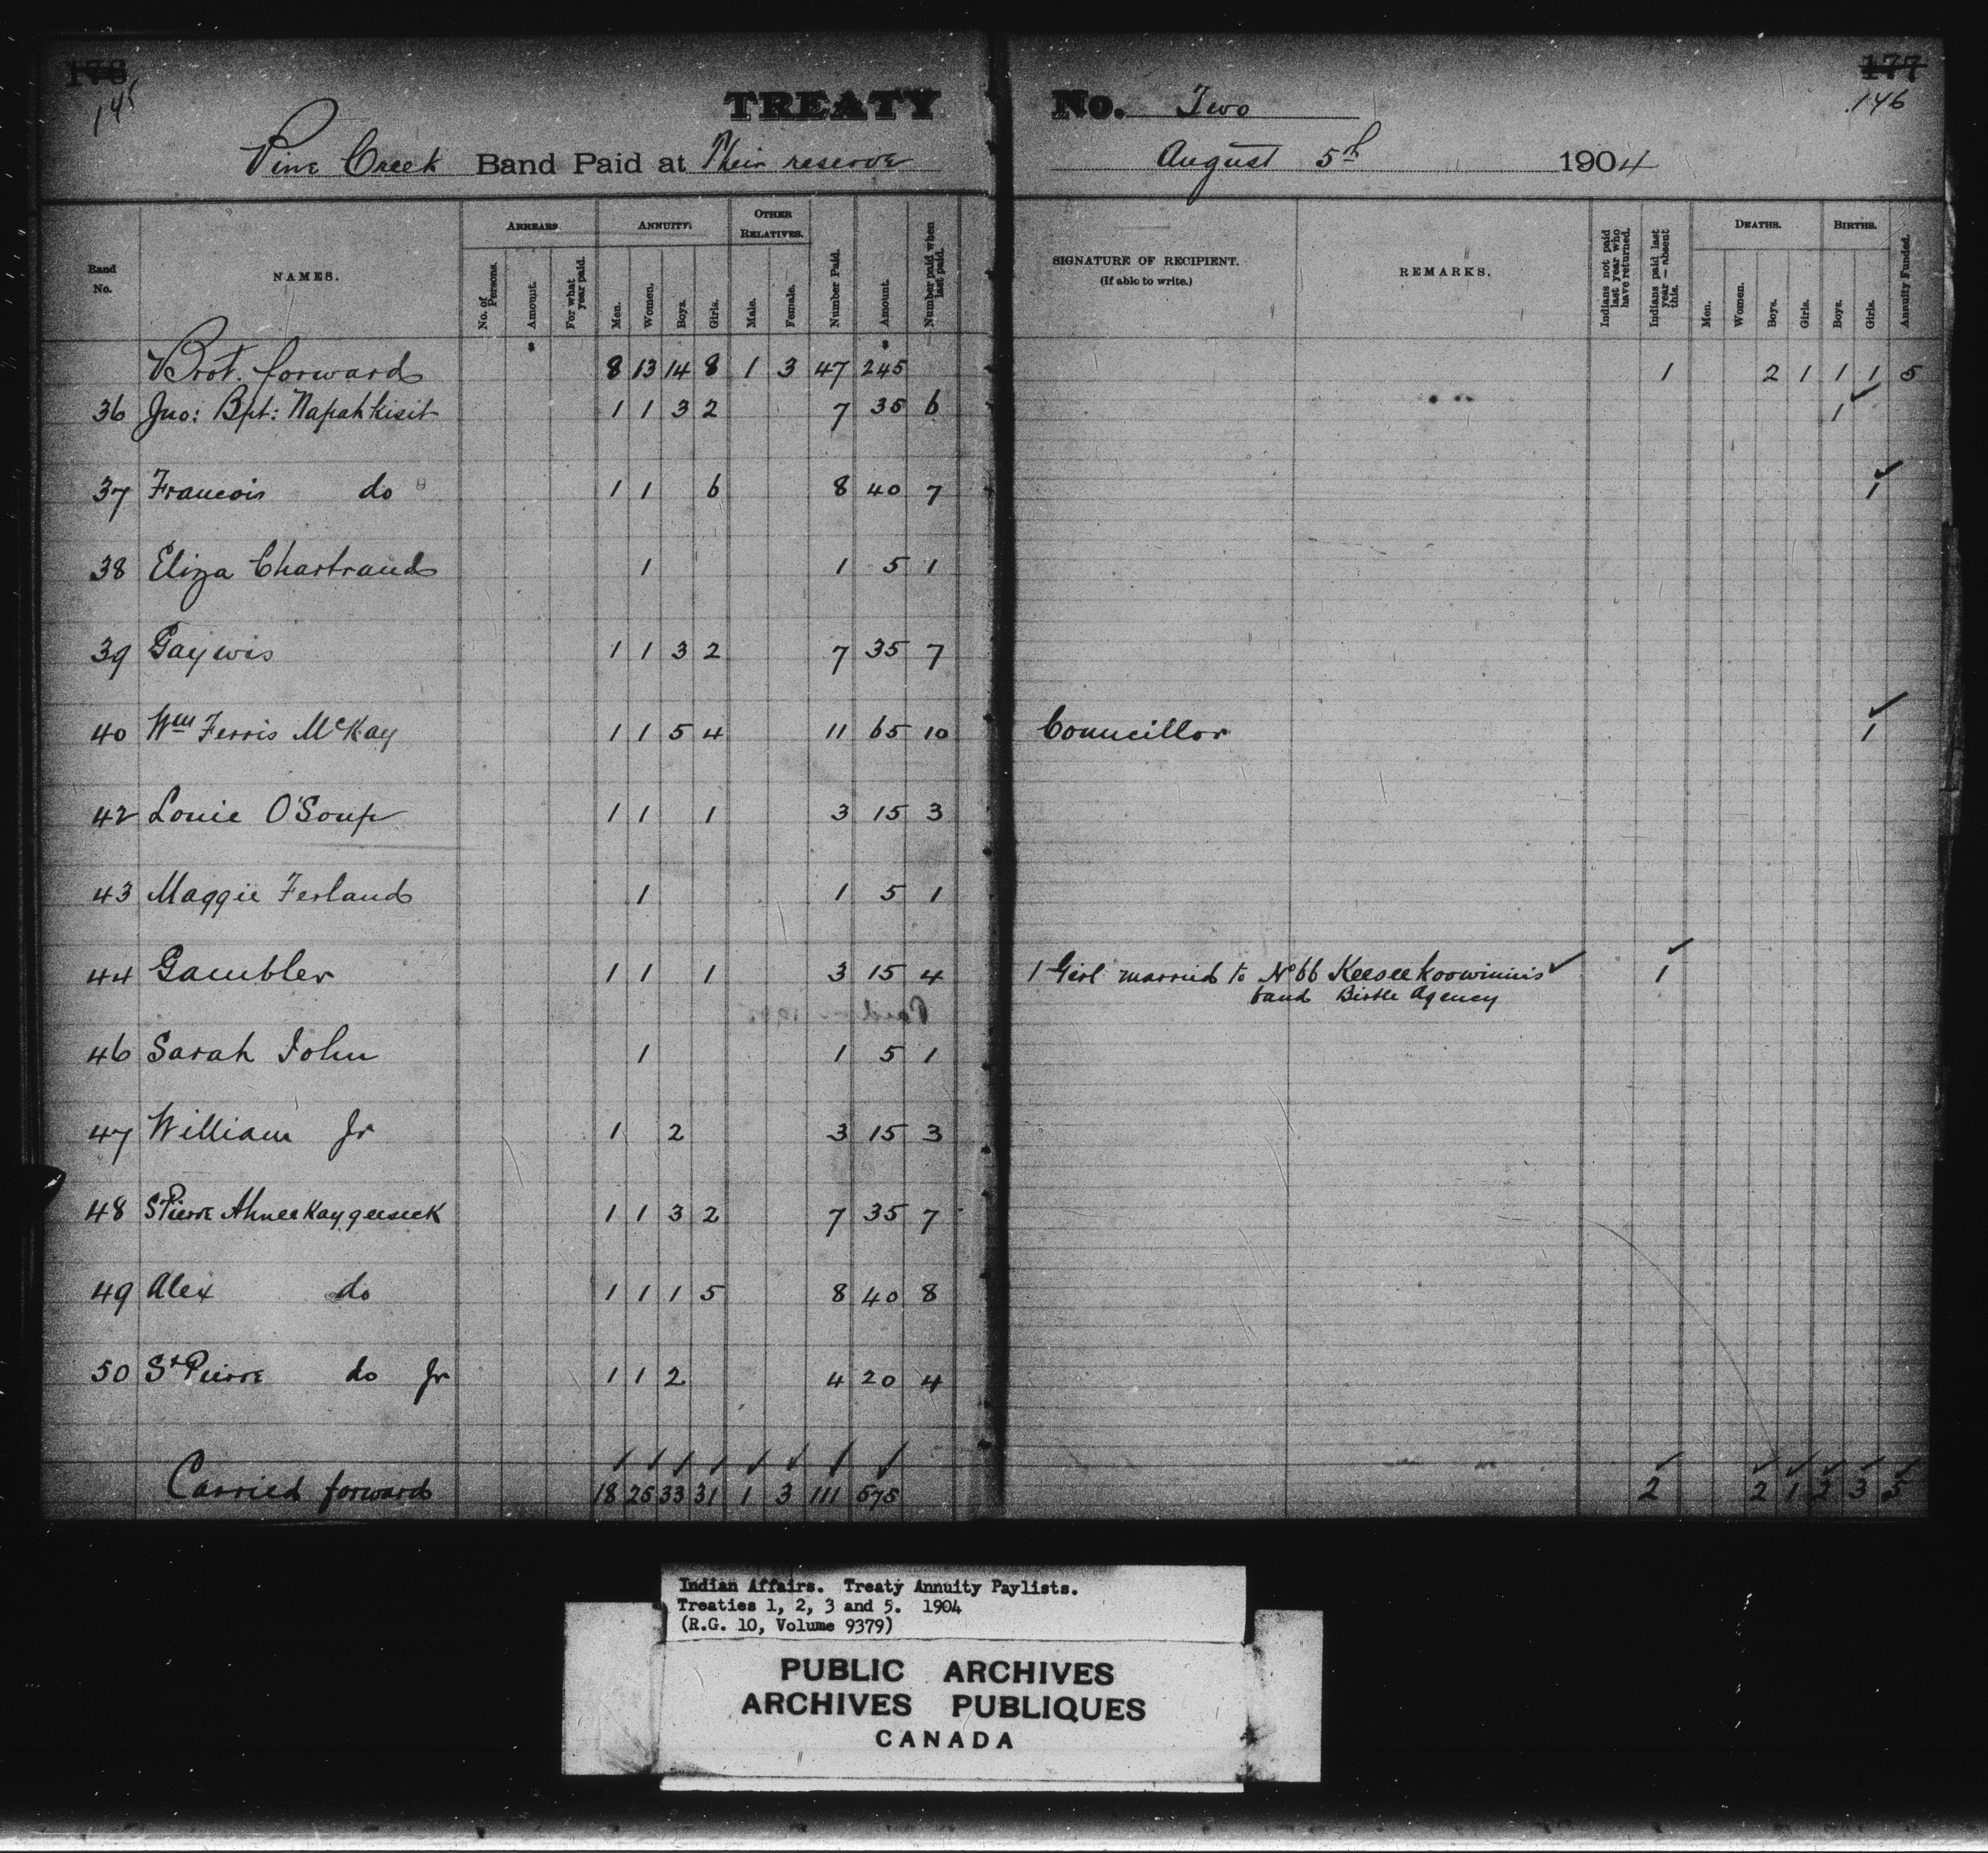 176 177
145 146
TREATY No. Two
Pine Creek Band Paid at Their reserve August 5th 1904
Band No. NAMES. ARREARS. ANNUITY. OTHER RELATIVES. SIGNATURE OF RECIPIENT. (If able to write.) REMARKS. DEATHS. BIRTHS.
No. of Persons. Amount. For what year paid. Men. Women. Boys. Girls. Male. Female. Number Paid. Amount. Number paid when last paid. Indians not paid last year who have returned. Indians paid last year — absent this. Men. Women. Boys. Girls. Boys. Girls. Annuity Funded.
Brot. forward 8 13 14 8 1 3 47 245 1 2 1 1 1 5
36 Jno: Bpt: Napahkisit 1 1 3 2 7 35 6 1 ✓
37 Francois do 1 1 6 8 40 7 1 ✓
38 Eliza Chartrand 1 1 5 1
39 Gaywis 1 1 3 2 7 35 7
40 Wm Ferris McKay 1 1 5 4 11 65 10 Councillor 1 ✓
42 Louie O'Soup 1 1 1 3 15 3
43 Maggie Ferland 1 1 5 1
44 Gambler 1 1 1 3 15 4 1 Girl married to No 66 Keeseekoowinnis ✓ 1 ✓
band Birtle Agency
46 Sarah John 1 1 5 1
47 William Jr 1 2 3 15 3
48 St Pierre Ahneekaygeeseek 1 1 3 2 7 35 7
49 Alex do 1 1 1 5 8 40 8
50 St Pierre do Jr 1 1 2 4 20 4
Carried forward 18 25 33 31 1 3 111 575 2 2 1 2 3 5
Indian Affairs. Treaty Annuity Paylists.
Treaties 1, 2, 3 and 5. 1904
(R.G. 10, Volume 9379)
PUBLIC ARCHIVES
ARCHIVES PUBLIQUES
CANADA